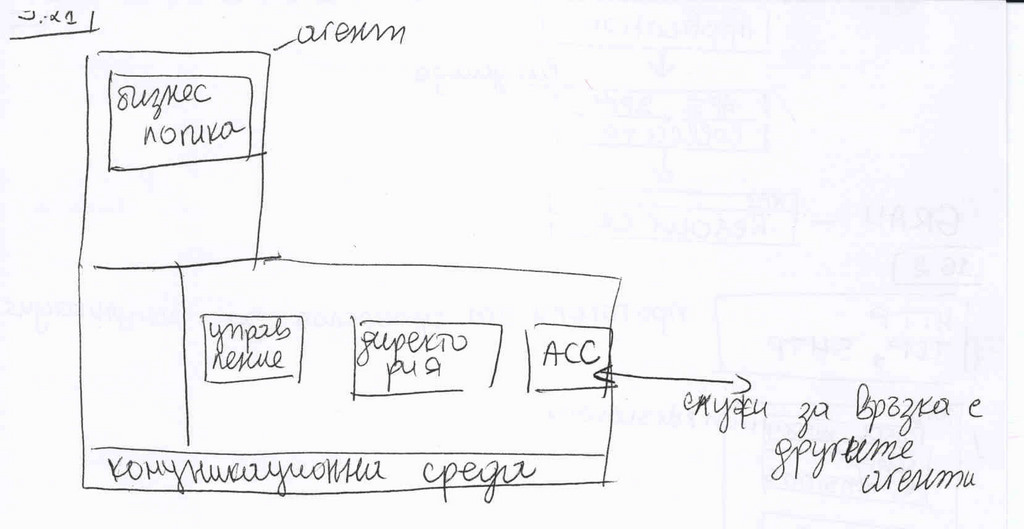 агент
бизнес
логика
управ
ление
директо
рия
ACC
служи за връзка с
другите
агенти
комуникационна среда